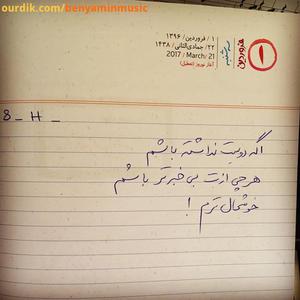 ourdik.com/benyaminmusic
۱ / فروردین / ۱۳۹۶
۲۲ / جمادی‌الثانی / ۱۴۳۸
2017 / March / 21
آغاز نوروز (تعطیل)
سه‌شنبه
۱
فروردین
8 - H -
اگه دوست نداشته باشم
هر چی ازت بی خبر تر باشم
خوشحال ترم !